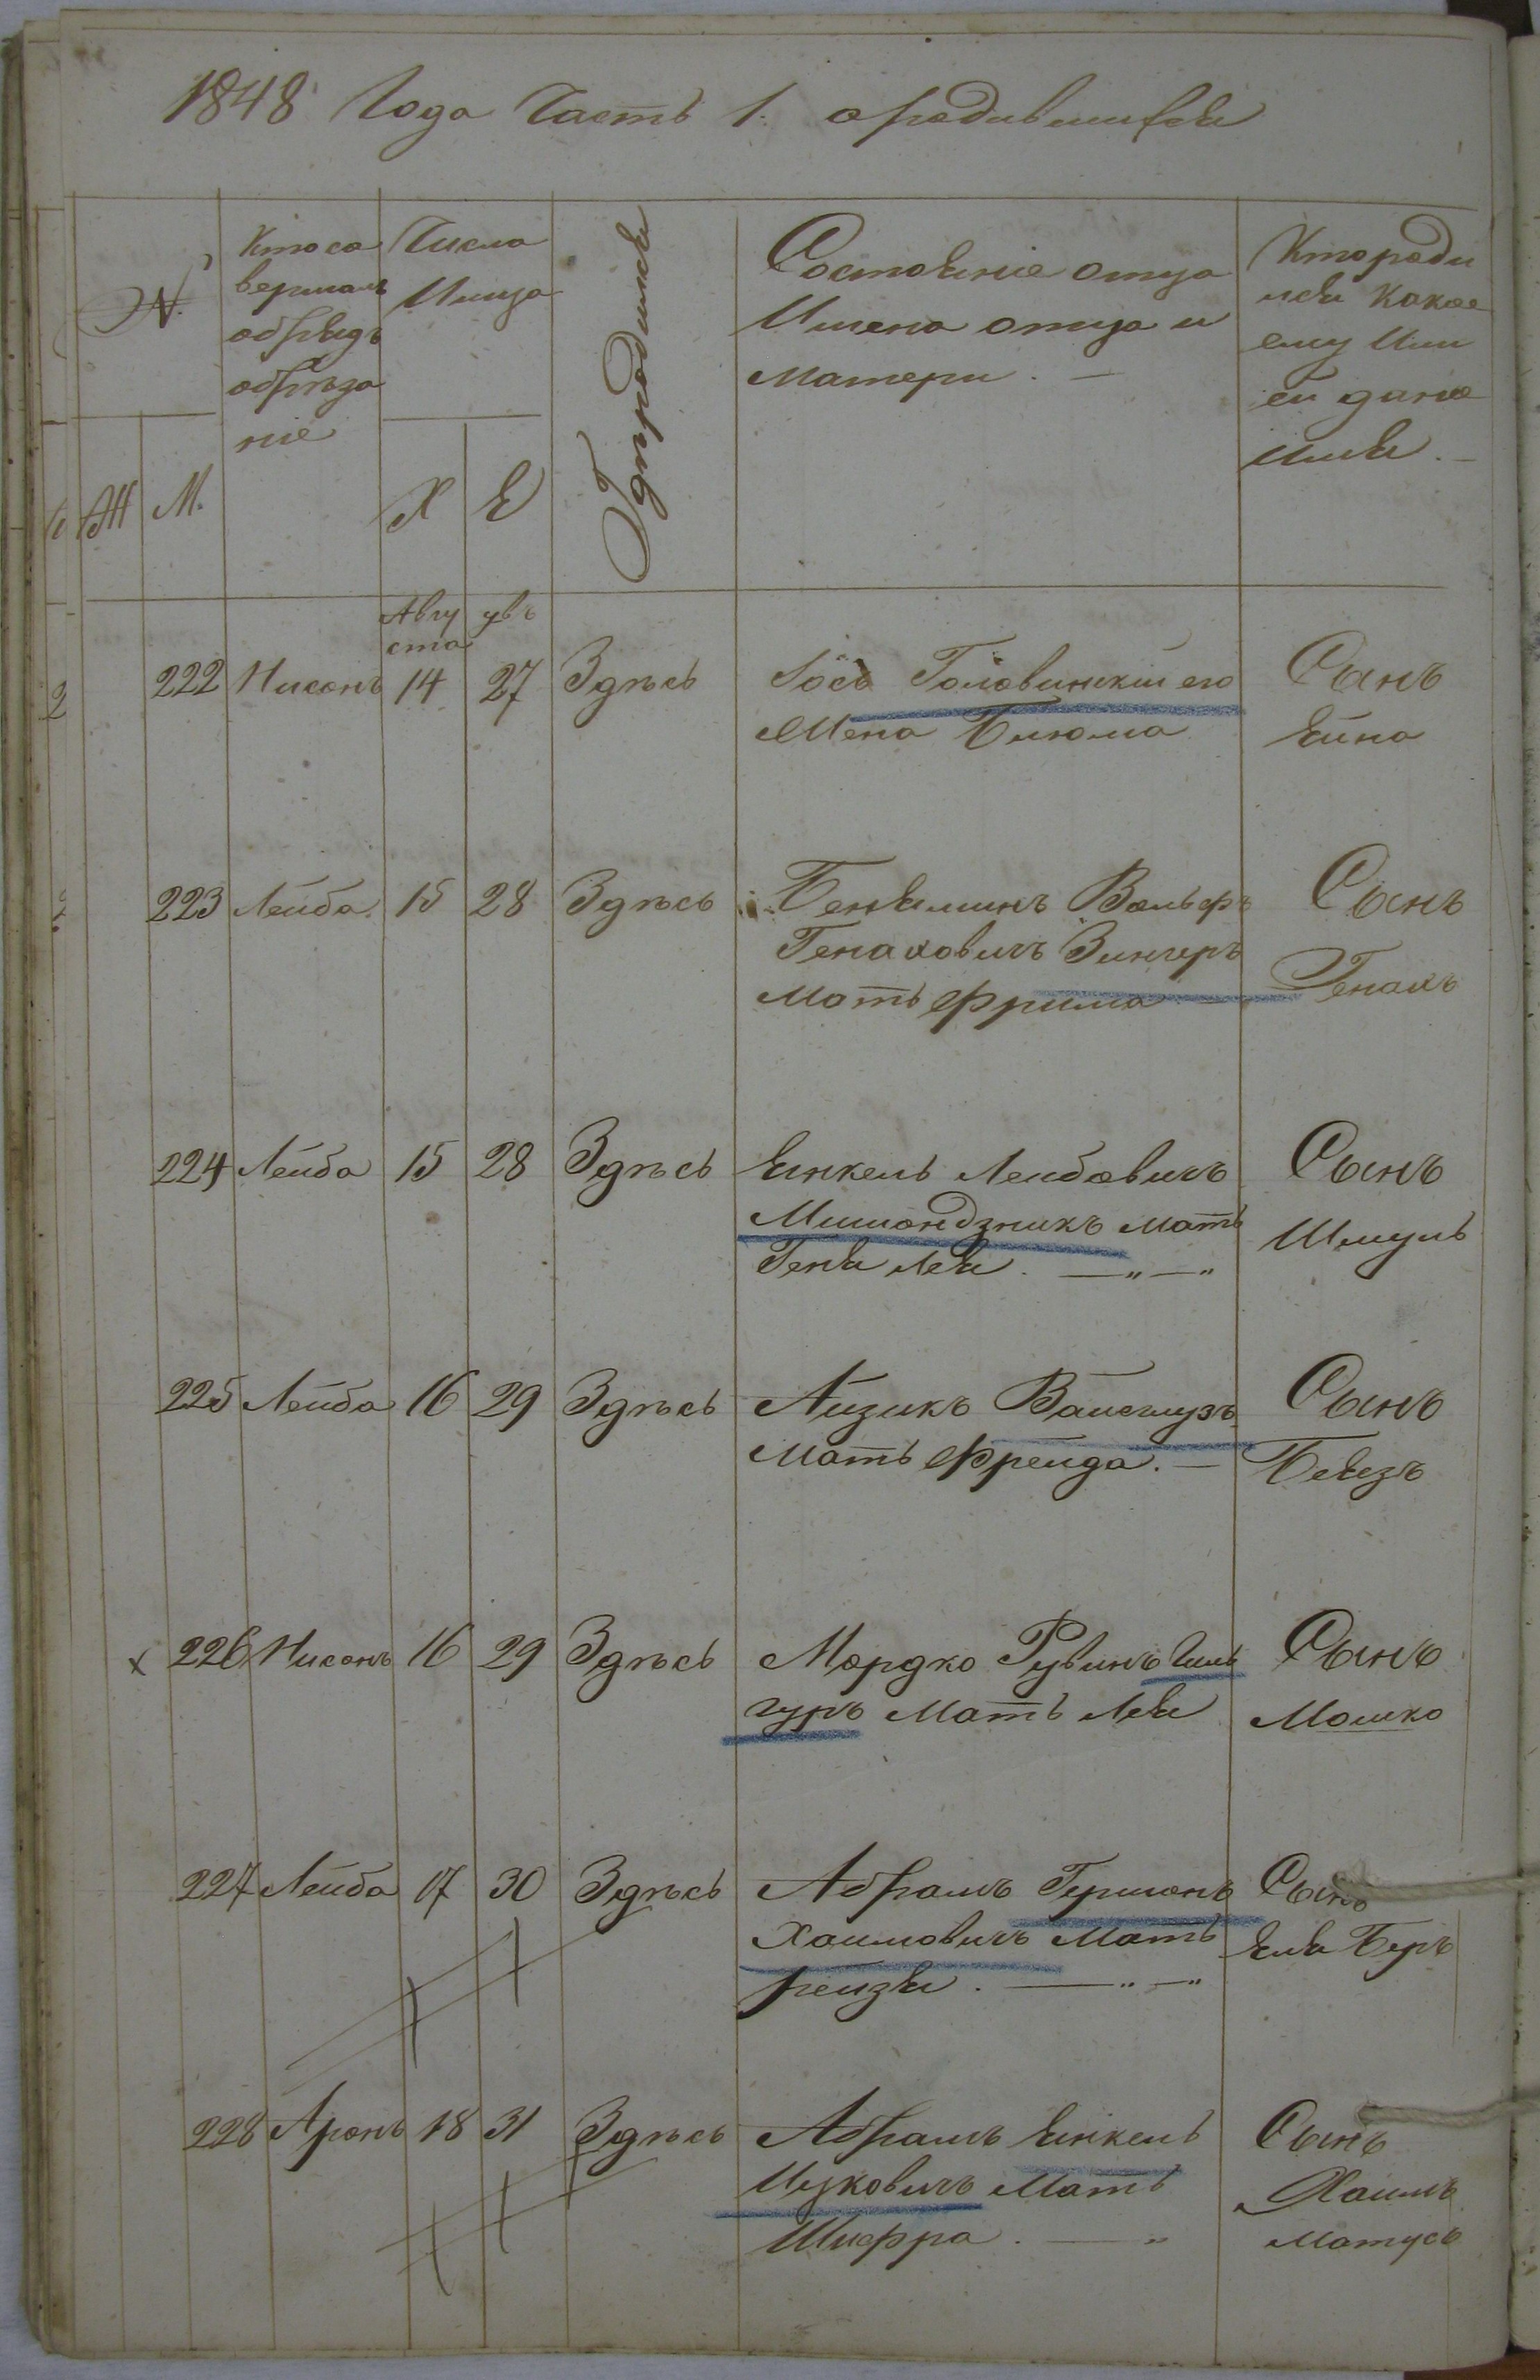 1848 Года Часть 1. о родившихся
№
Кто со
вершалъ
обрядъ
обрѣза
ніе
Числа
Мѣсяца
Гдѣ родился
Состояніе отца
Имена отца и
Матери. —
Кто роди
лся какое
ему или
ей дано
Имя. —
Ж М. Х Е
Авгу
ста
222 Нисонъ 14 27 Здѣсь Іось Головинскій его Сынъ
Жена Блюма Яйна
223 Лейба 15 28 Здѣсь Беняминъ Вольфъ Сынъ
Генаховичъ Зингеръ
Мать Фрима — Генахъ
224 Лейба 15 28 Здѣсь Янкель Лейбовичъ Сынъ
Мать Шмуль
Геня Лея. — „ — „
225 Лейба 16 29 Здѣсь Айзикъ Сынъ
Мать Фрейда. —
226 Нисонъ 16 29 Здѣсь Мордко Рувинъ Сынъ
Мать Лея Мошко
227 Лейба 17 30 Здѣсь Абрамъ Германъ Сынъ
Хаимовичъ Мать Беръ
Рейзя. — „ — „
228 Аронъ 18 31 Здѣсь Абрамъ Янкель Сынъ
Ицковичъ Мать Хаимъ
Шифра. — „ Матусъ